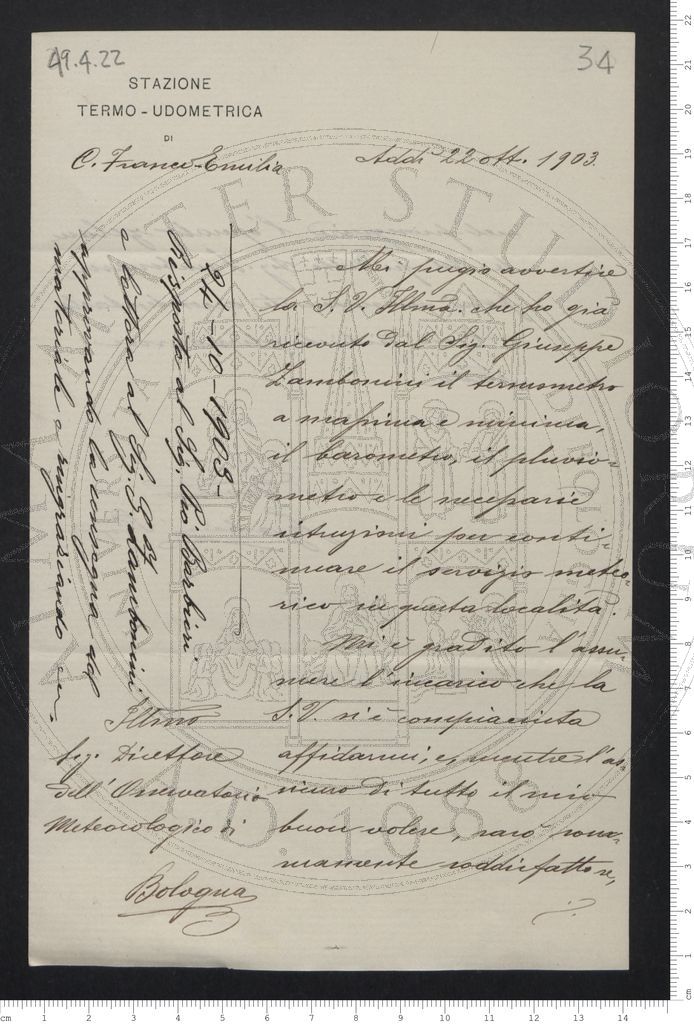 49.4.22
34
STAZIONE
TERMO-UDOMETRICA
DI
C. Franco-Emilia
Addì 22 ott. 1903.
Mi pregio avvertire
la S. V. Illma. che ho già
ricevuto dal Sig. Giuseppe
Zambonini il termometro
a massima e minima,
il barometro, il pluvio-
metro e le necessarie
istruzioni per conti-
nuare il servizio meteo-
rico in questa località.
Mi è gradito l'assu-
mere l'incarico che la
S. V. si è compiaciuta
affidarmi, e, mentre l'as-
sicuro di tutto il mio
buon volere, sarò som-
mamente soddisfatto se,
Illmo
Sig. Direttore
dell'Osservatorio
Meteorologico di
Bologna
24-10-1903-
Risposta al Sig. Pio Barbieri
e lettera al Sig. G. Zambonini
approvando la consegna del
materiale e ringraziando
ALMA MATER STUDIORUM
A.D. 1088